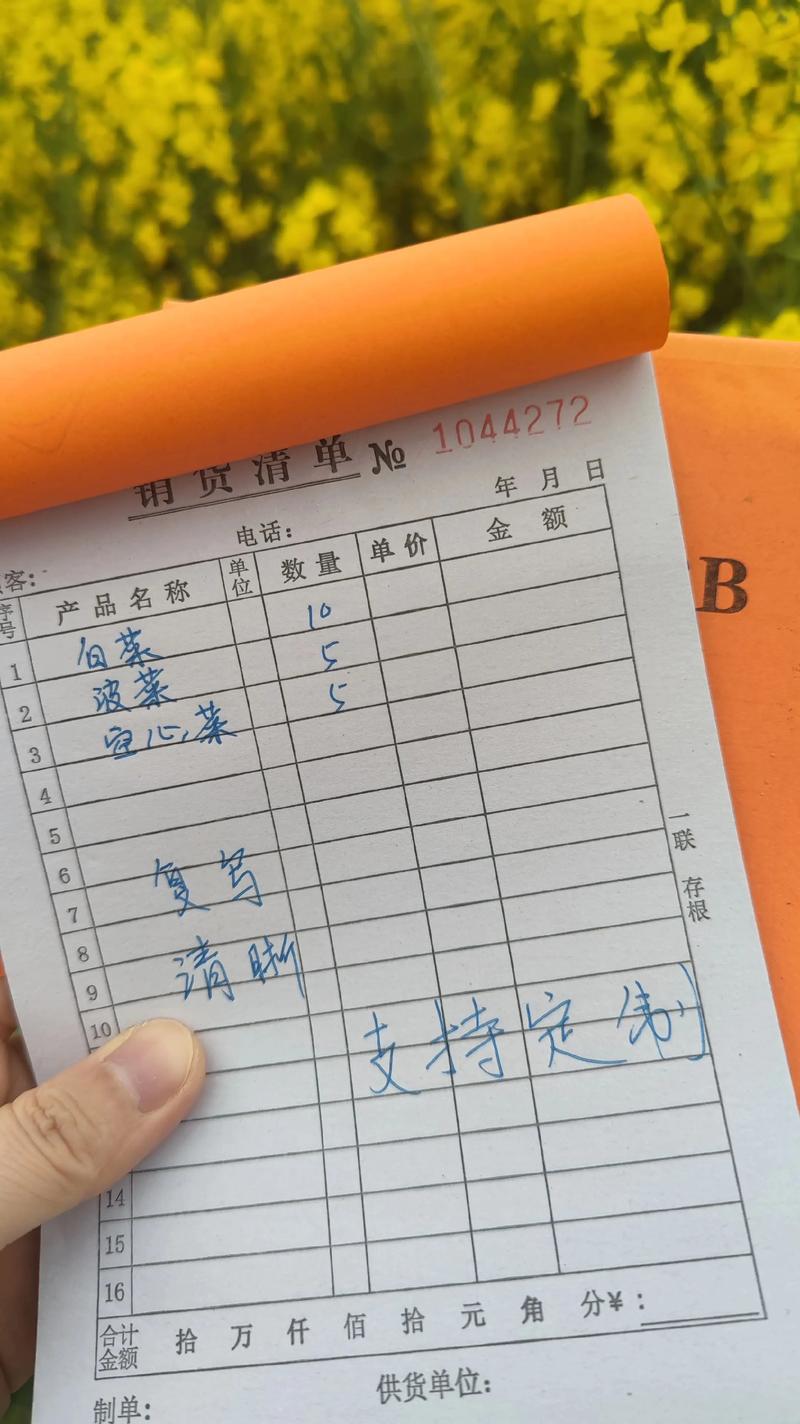 销货清单 № 1044272
年 月 日
电话:
客:
序号 产品名称 单位 数量 单价 金额
1 白菜 10
2 波菜 5
3 空心菜 5
4
5
6
7 复写
8
9 清晰
10
支持定制
14
15
16
合计金额 拾 万 仟 佰 拾 元 角 分¥:
制单: 供货单位:
一联 存根
B